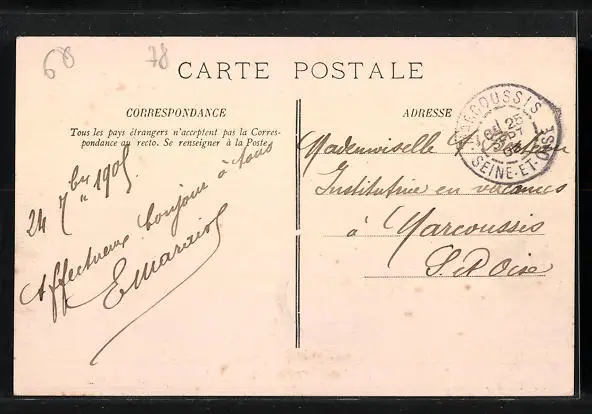 60
78
CARTE POSTALE
CORRESPONDANCE
Tous les pays étrangers n'acceptent pas la Corres-
pondance au recto. Se renseigner à la Poste.
24 7bre 1905
Affectueux bonjour à tous
ADRESSE
MARCOUSSIS
25
SEPT
SEINE-ET-OISE
Mademoiselle
Institutrice en vacances
à Marcoussis
S. et Oise